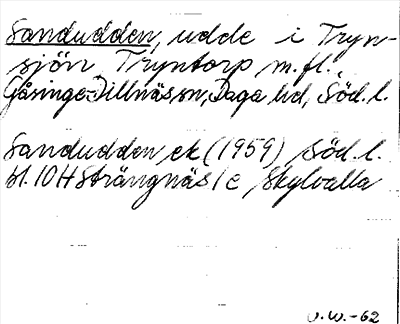 Sandudden, udde i Tryn-
sjön Tryntorp m.fl.,
Gåsinge-Dillnäs sn, Daga hd, Söd. l.
Sandudden ek (1959) Söd. l.
bl. 10H Strängnäs / c Skylvalla
V.W.-62